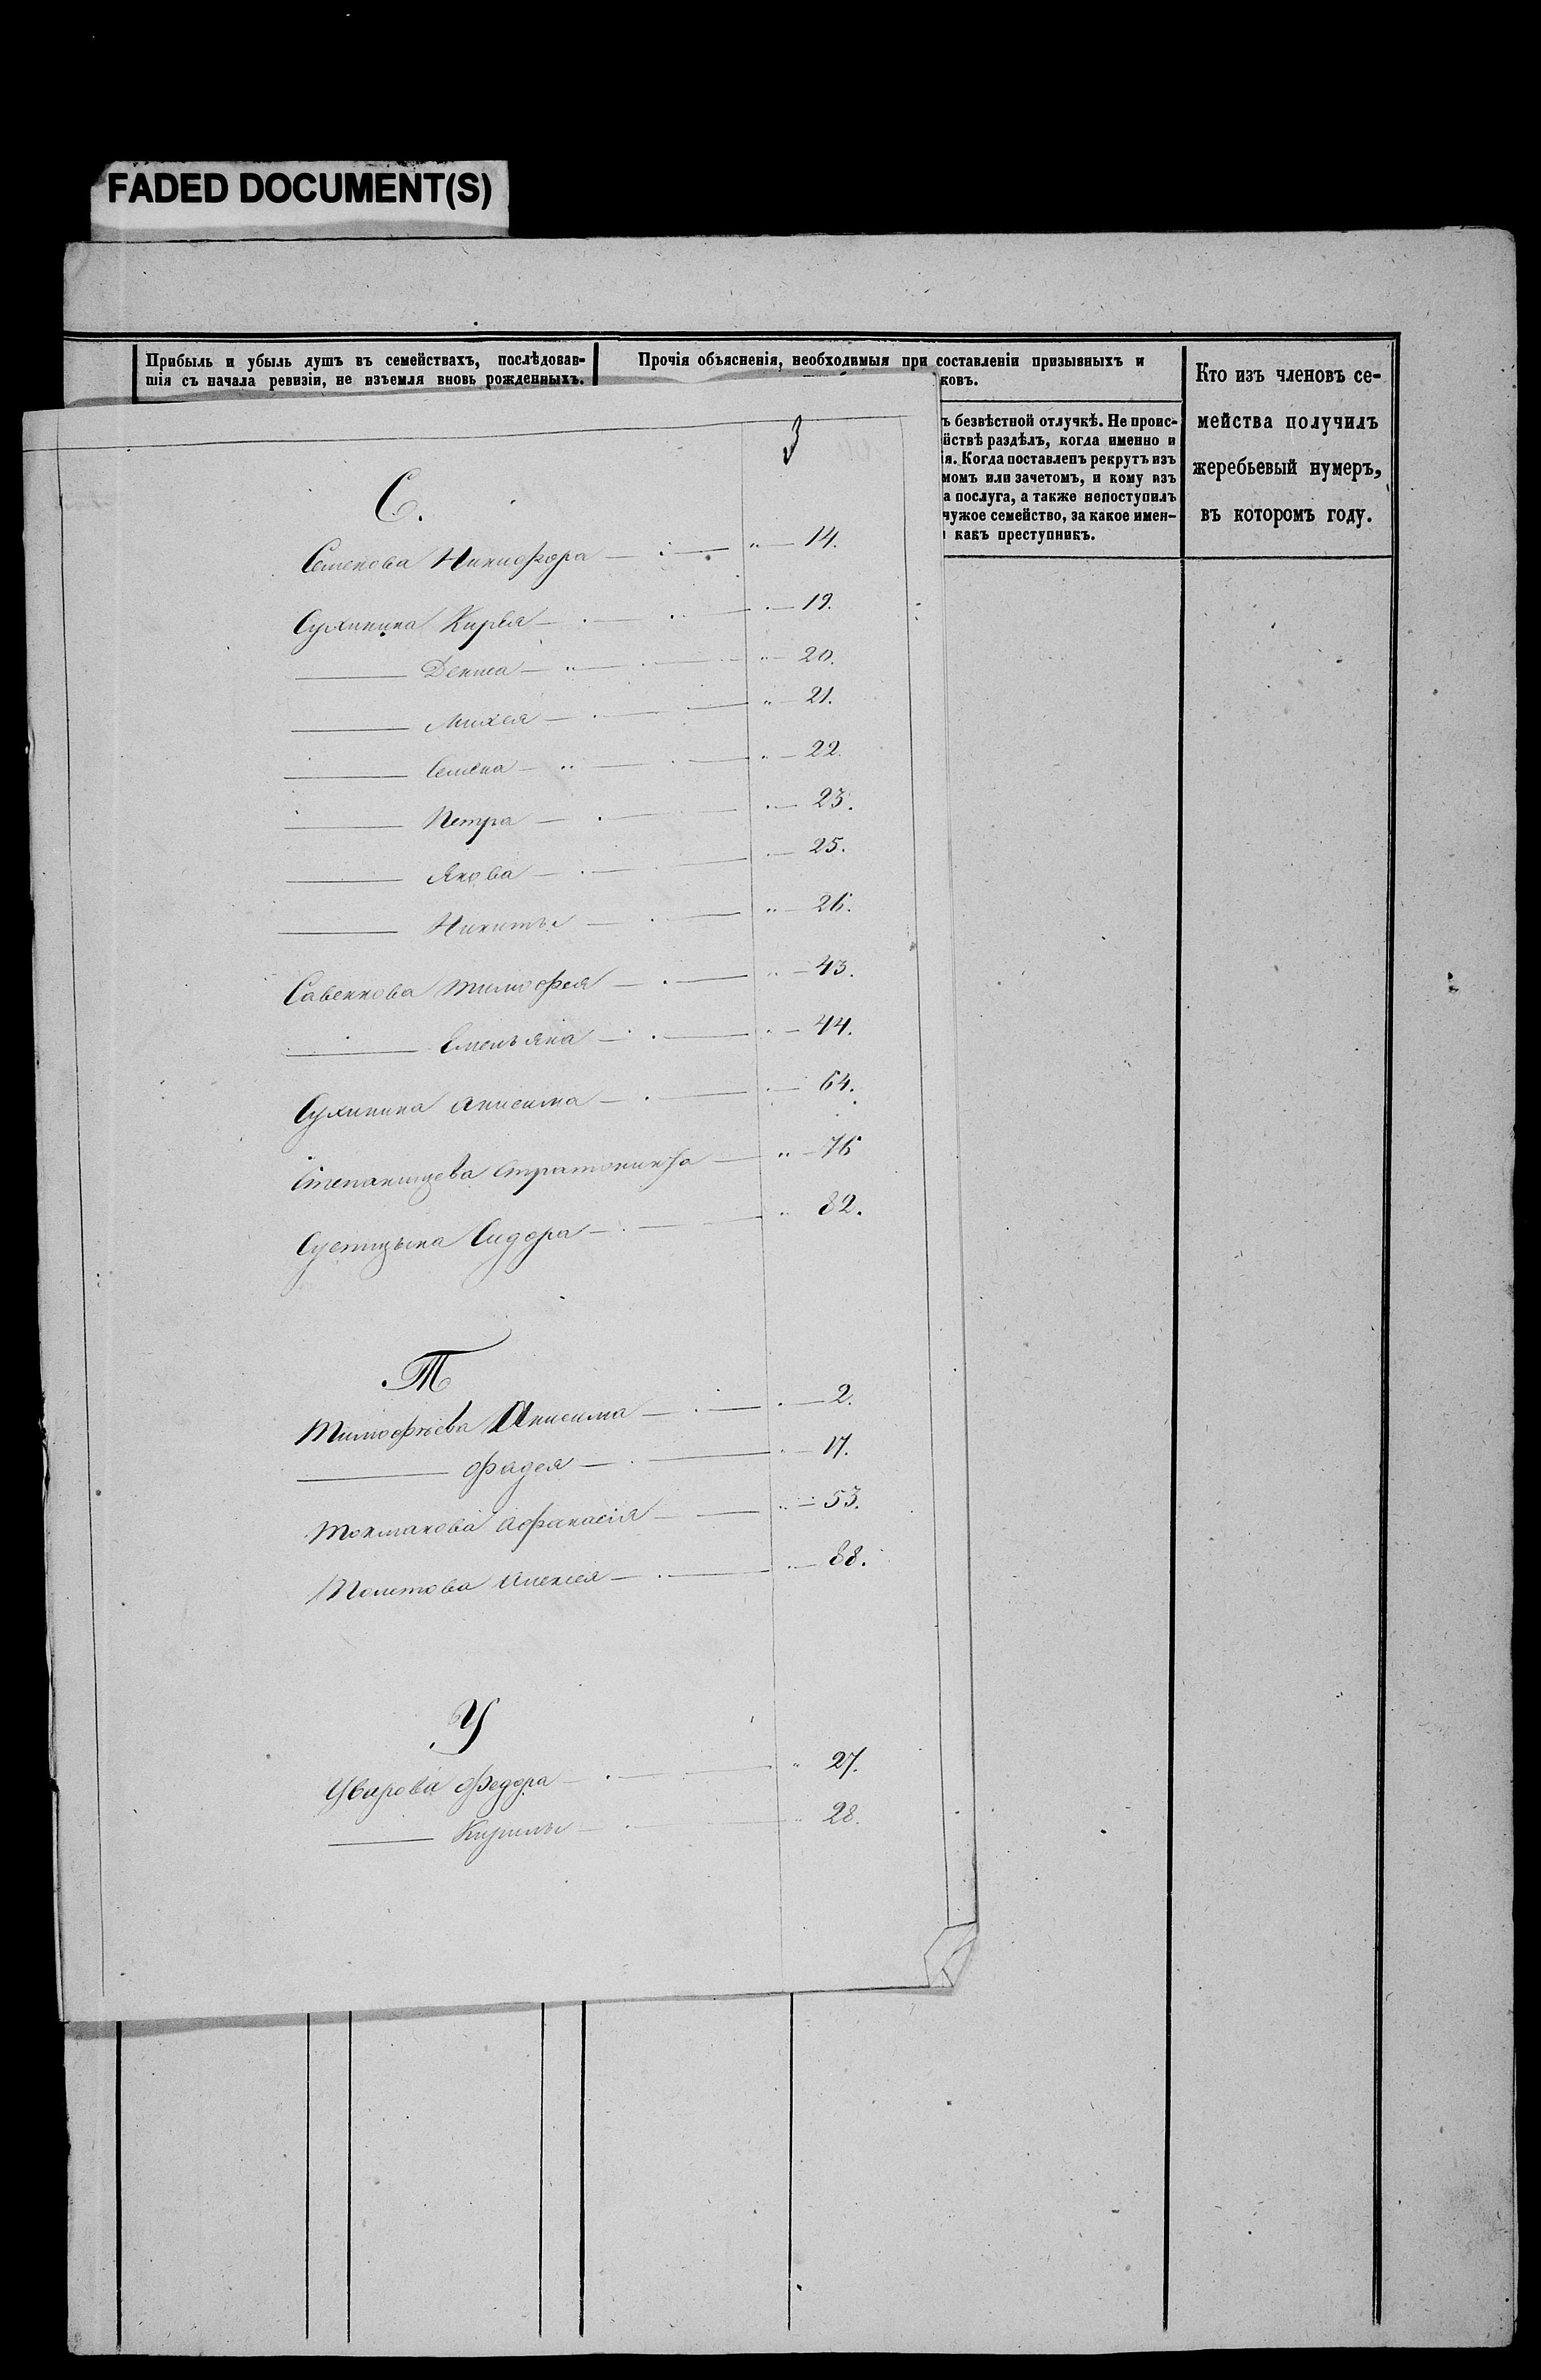 FADED DOCUMENT(S)
Прибыль и убыль душъ въ семействахъ, послѣдовав-
шія съ начала ревизіи, не изъемля вновь рожденныхъ.
Прочія объясненія, необходимыя при составленіи призывныхъ и
ковъ.
ъ безвѣстной отлучкѣ. Не проис-
йствѣ раздѣлъ, когда именно и
ія. Когда поставленъ рекрутъ изъ
момъ или зачетомъ, и кому изъ
а послуга, а также непоступилъ
чужое семейство, за какое имен-
какъ преступникъ.
Кто изъ членовъ се-
мейства получилъ
жеребьевый нумеръ,
въ которомъ году.
3
С.
Семенова Никифора — 14.
Сухинина Кирѣя — 19.
— Дениса — 20.
— Михея — 21.
— Семена — 22.
— Петра — 23.
— Якова — 25.
— Никиты — 26.
Савенкова Тимофея — 43.
— Емельяна — 44.
Сухинина Анисима — 64.
Степанищева — 76
Сидора — 82.
Т
Тимофѣева Анисима — 2.
— Фадея — 17.
Токмакова Афанасія — 53.
Алексея — 88.
У
Уварова Федора — 27.
— Кирилы — 28.